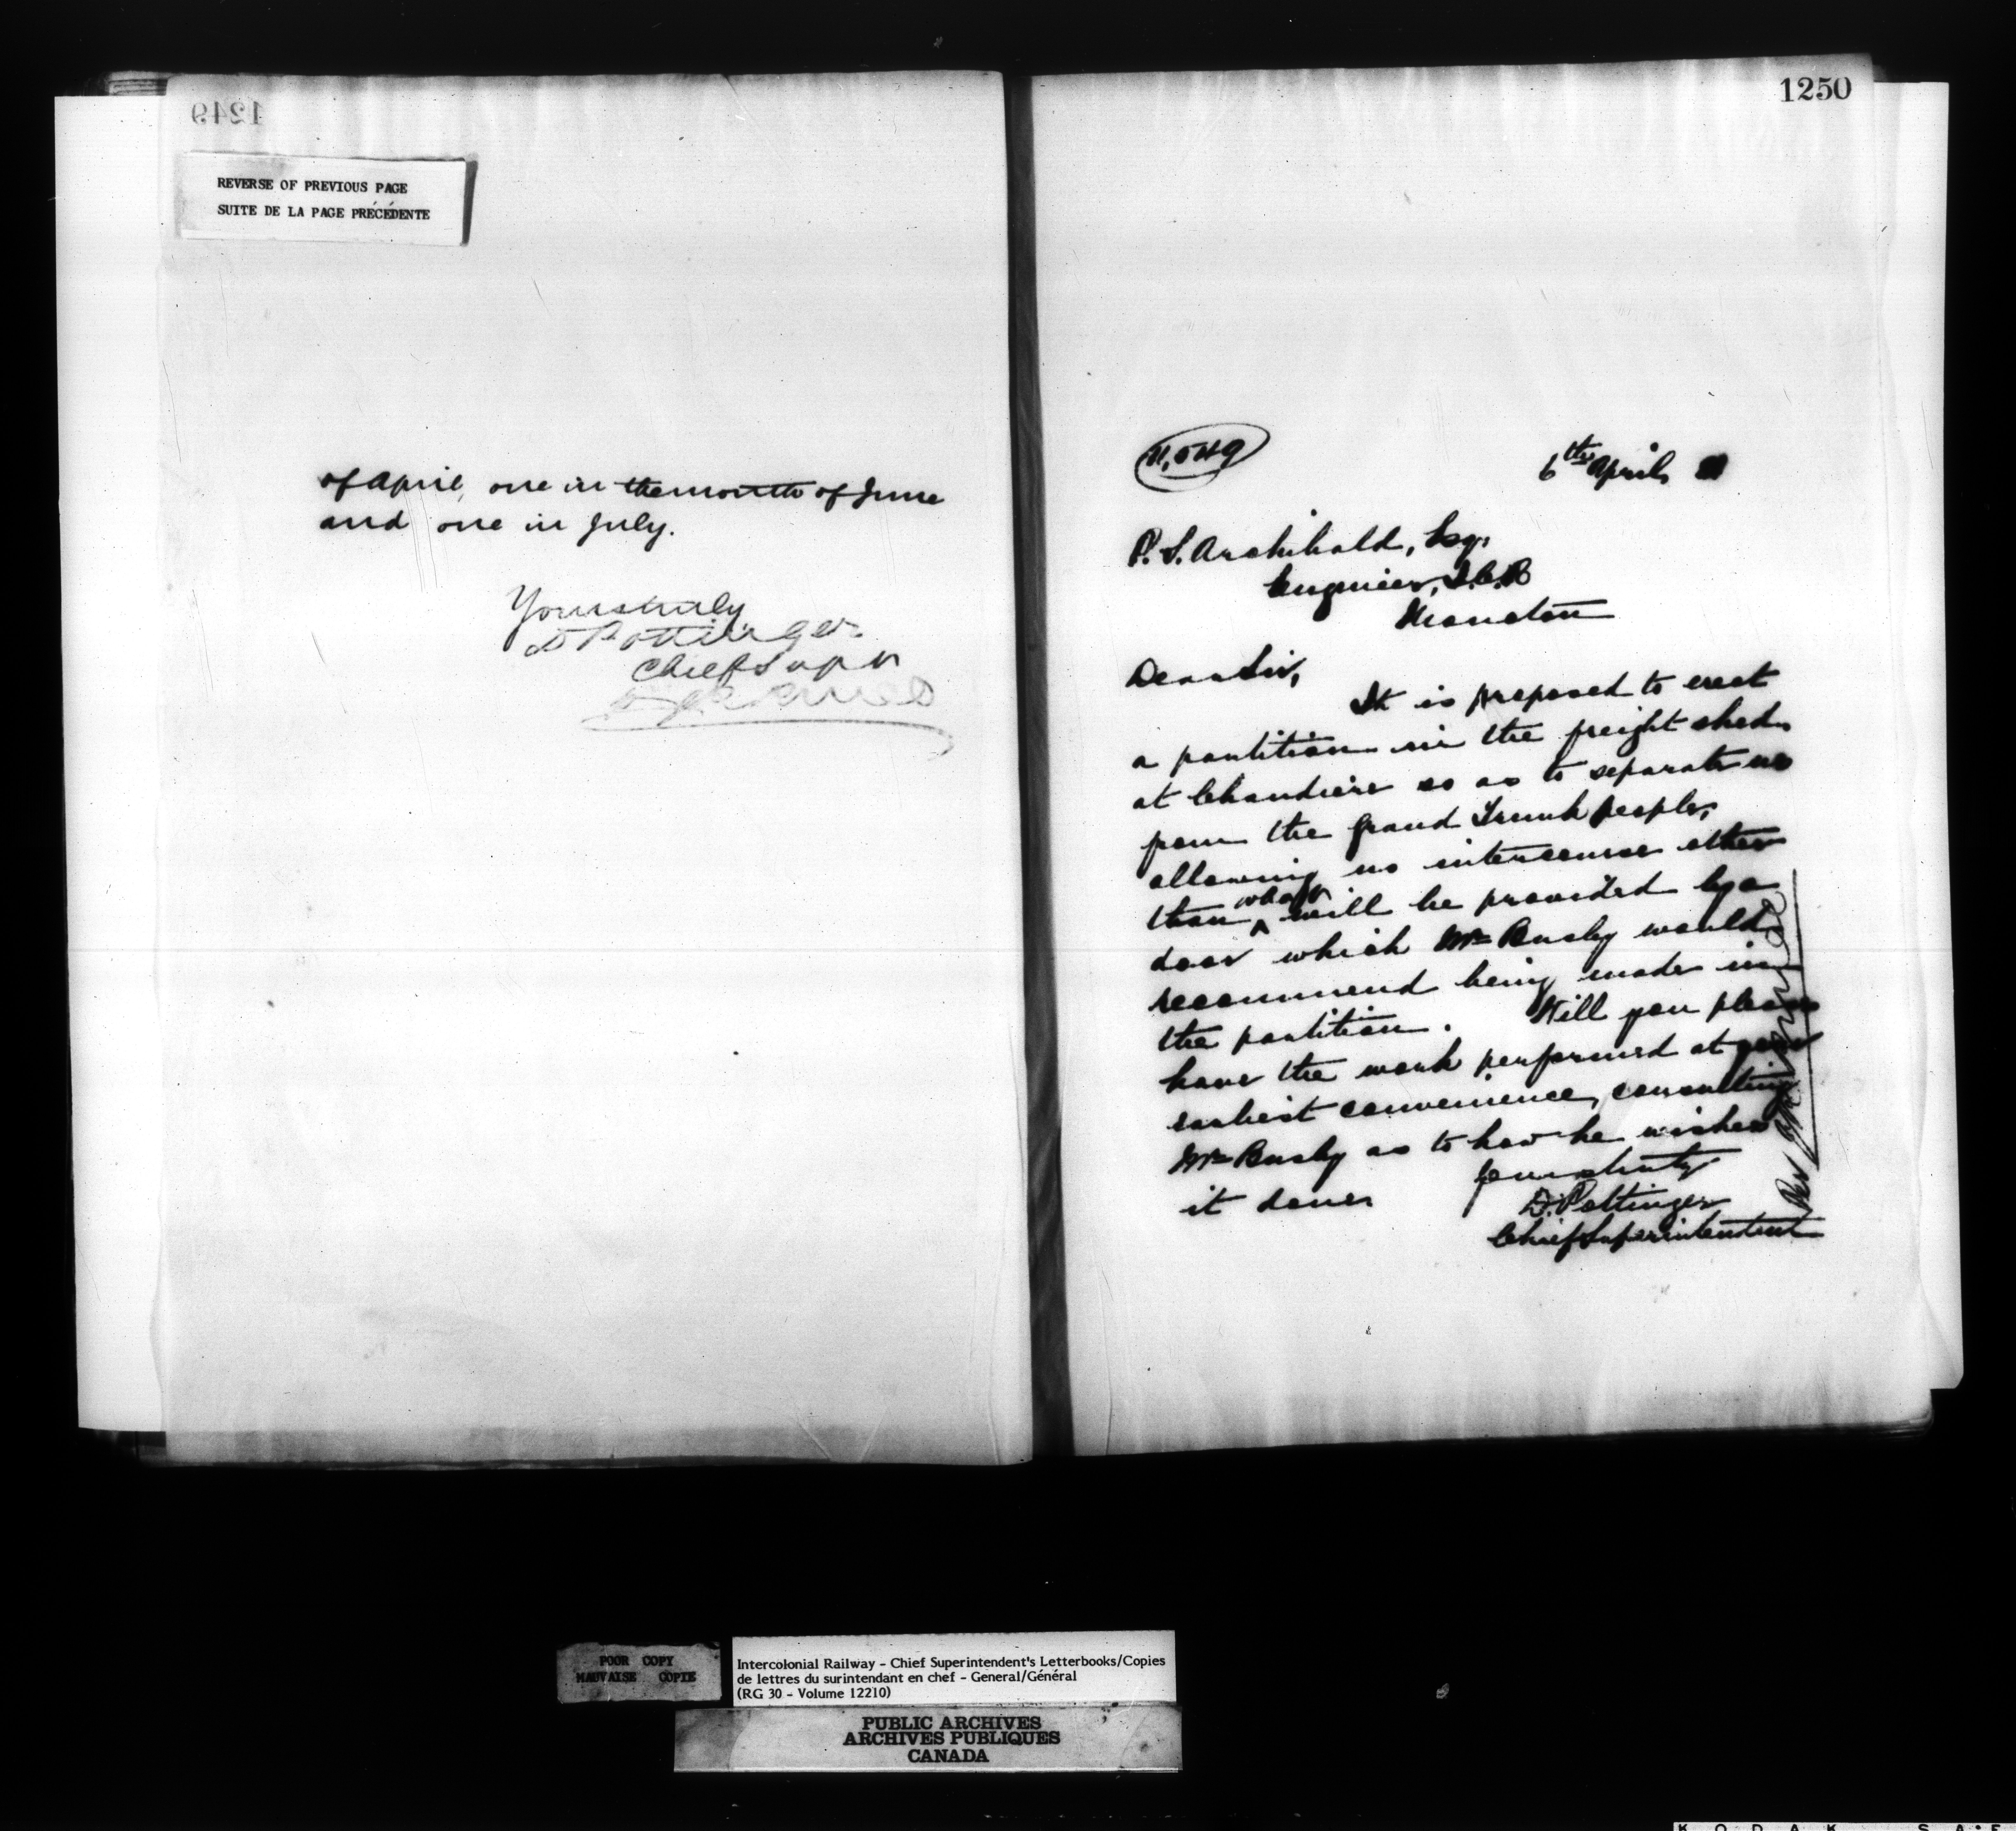 1249
REVERSE OF PREVIOUS PAGE
SUITE DE LA PAGE PRÉCÉDENTE
of April, one in the month of June
and one in July.
Yours truly
D Pottinger
Chief Supt
1250
11,549
6th April 81
P. S. Archibald, Esq:
Engineer, I.C.R
Moncton
Dear Sir,
It is proposed to erect
a partition in the freight shed
at Chaudiere so as to separate us
from the Grand Trunk people,
allowing no intercourse other
than what will be provided by a
door which Mr Busby would
recommend being made in
the partition. Will you please
have the work performed at your
earliest convenience, consulting
Mr Busby as to how he wishes
it done.
Yours truly
D. Pottinger
Chief Superintendent
Per
POOR COPY
MAUVAISE COPIE
Intercolonial Railway - Chief Superintendent's Letterbooks/Copies
de lettres du surintendant en chef - General/Général
(RG 30 - Volume 12210)
PUBLIC ARCHIVES
ARCHIVES PUBLIQUES
CANADA